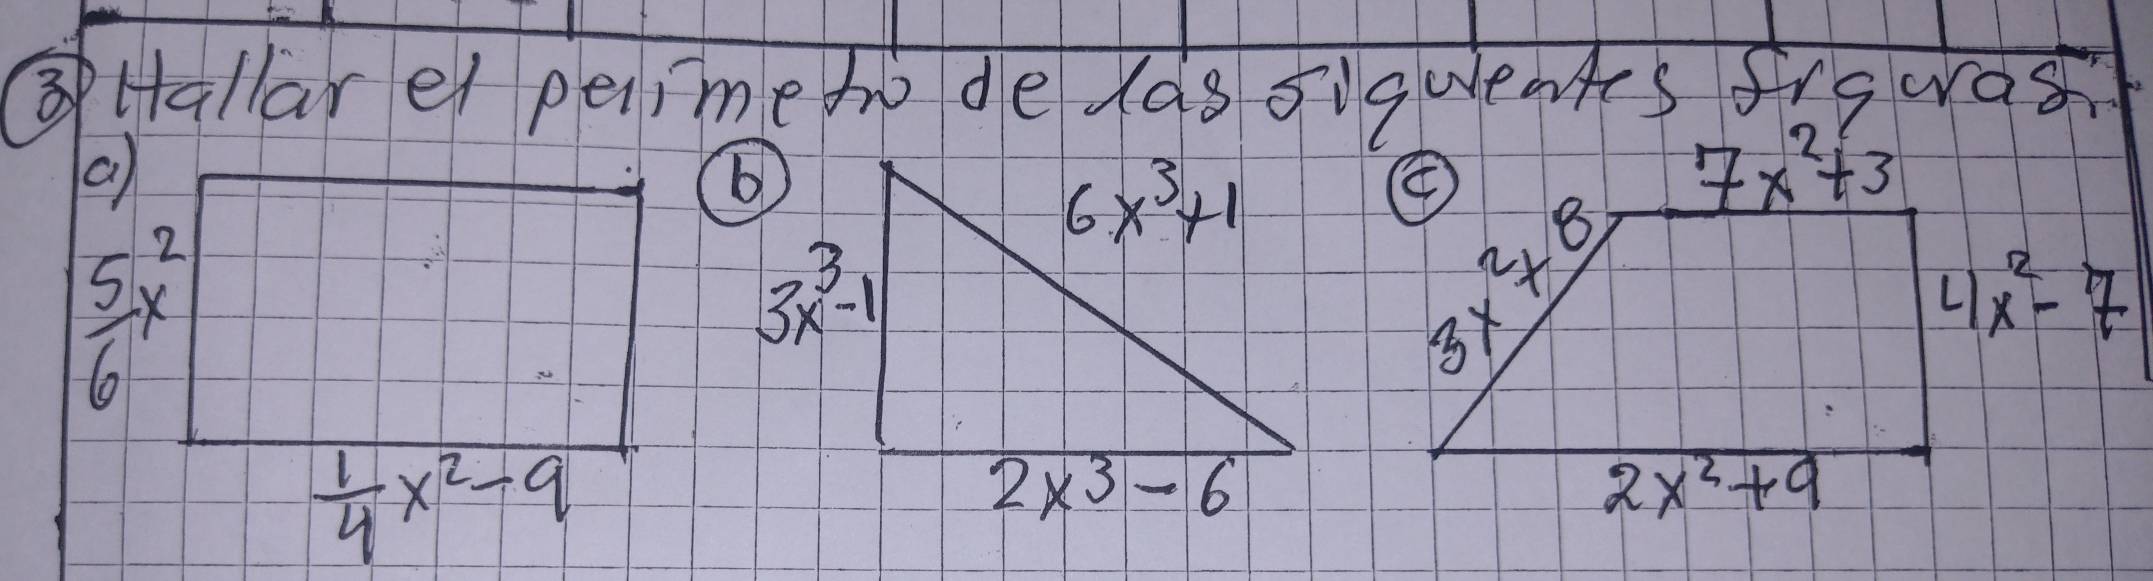 ③ Hallar el perímetro de las siguientes figuras.
a)
5/6 x²
1/4 x² - 9
ⓑ
6x³+1
3x³-1
2x³ - 6
ⓒ
7x²+3
3x²x8
4x² - 7
2x²+9